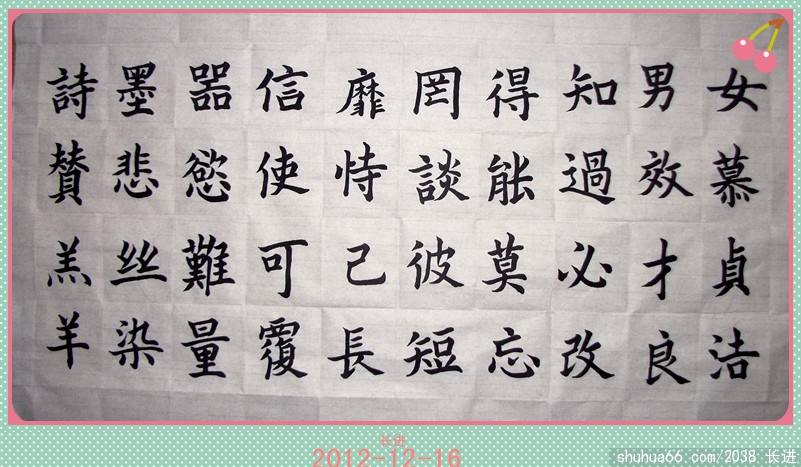 女慕貞洁
男效才良
知過必改
得能莫忘
罔談彼短
靡恃己長
信使可覆
器慾難量
墨悲丝染
詩賛羔羊
长进
2012-12-16
shuhua66.com/2038 长进